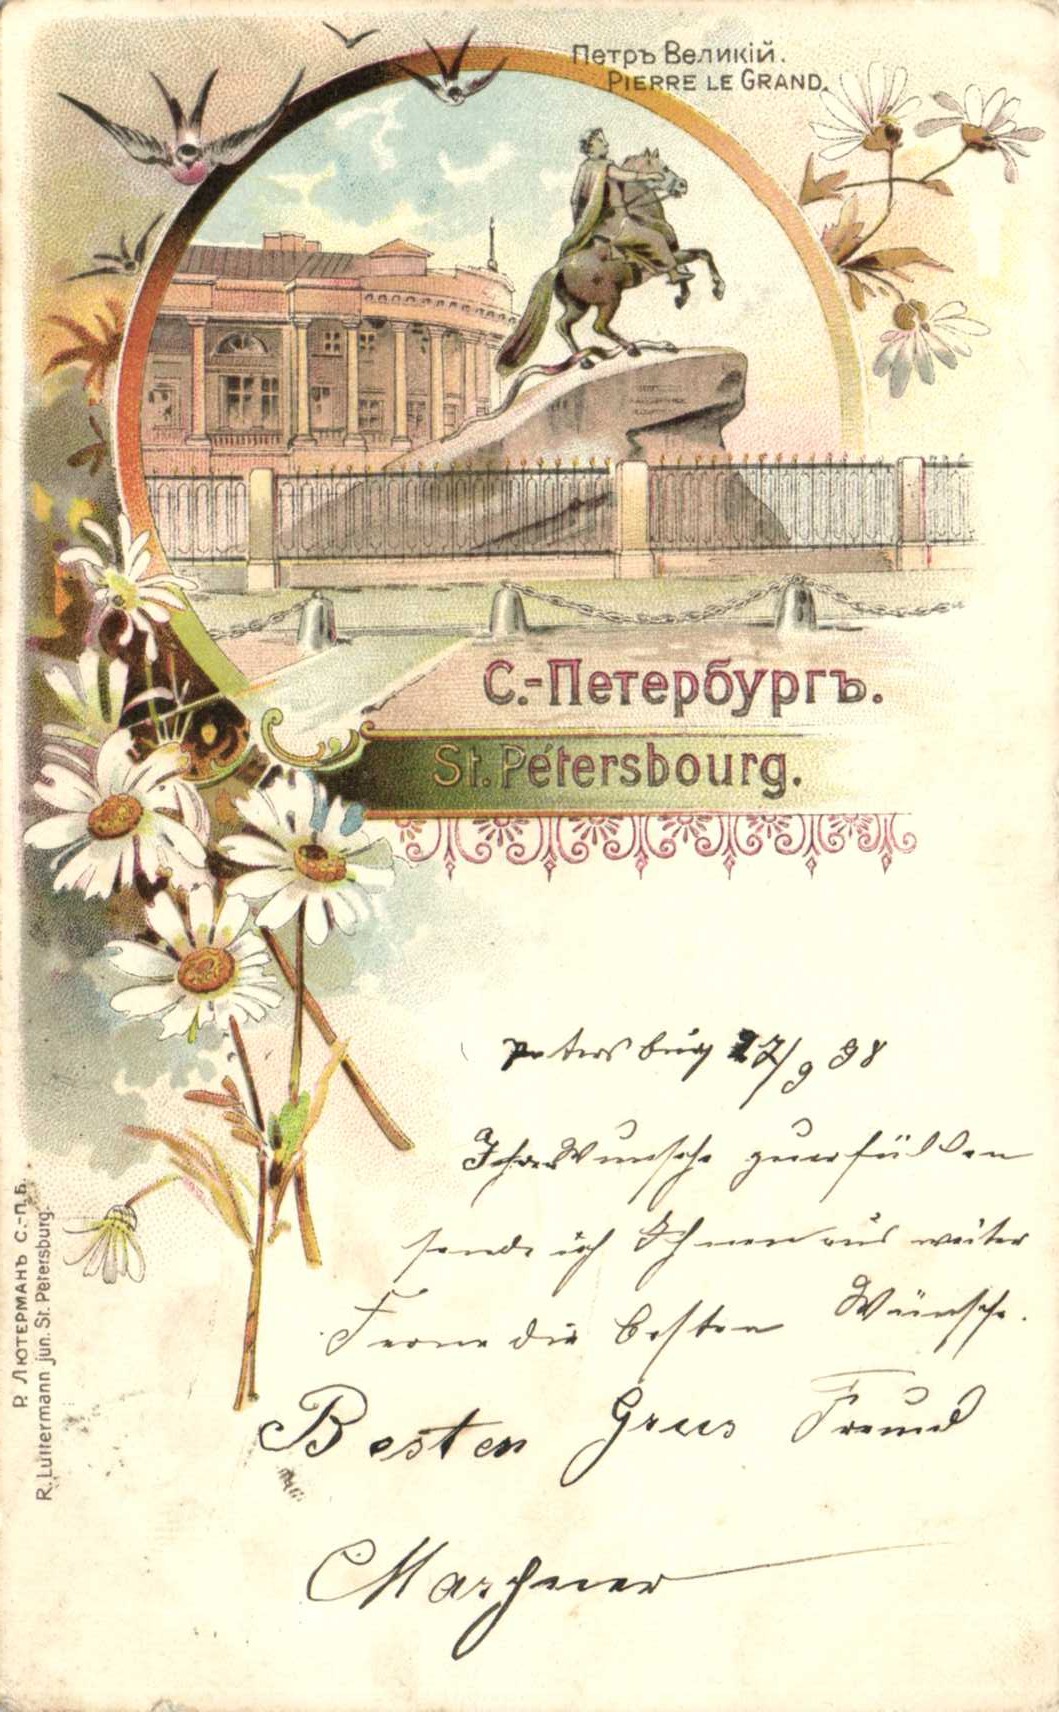 Петръ Великій.
PIERRE LE GRAND.
С.-Петербургъ.
St. Pétersbourg.
Petersburg 27/9 98
Ihren Wunsche zu erfüllen
sende ich Ihnen aus weiter
Ferne die besten Wünsche.
Besten Gruss Freund
Р. Лютерманъ С.-П.Б.
R. Luttermann jun. St. Petersburg.